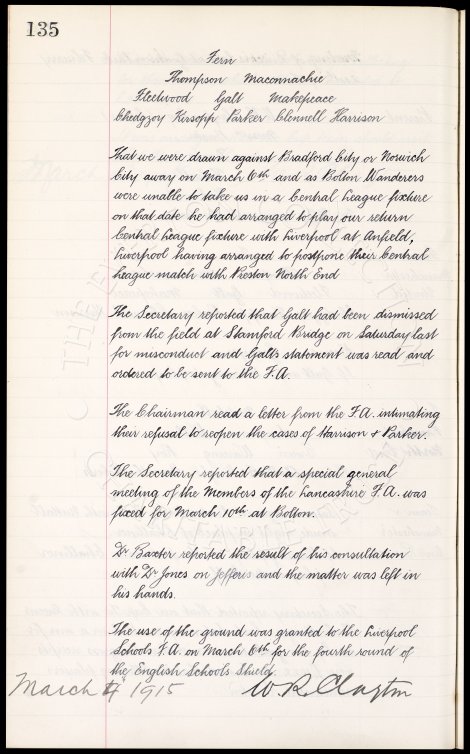 135
Fern
Thompson Maconnachie
Fleetwood Galt Makepeace
Chedgzoy Kirsopp Parker Clennell Harrison
That we were drawn against Bradford City or Norwich
City away on March 6th and as Bolton Wanderers
were unable to take us in a Central League fixture
on that date he had arranged to play our return
Central League fixture with Liverpool at Anfield,
Liverpool having arranged to postpone their Central
League match with Preston North End
The Secretary reported that Galt had been dismissed
from the field at Stamford Bridge on Saturday last
for misconduct and Galt's statement was read and
ordered to be sent to the F.A.
The Chairman read a letter from the F.A. intimating
their refusal to reopen the cases of Harrison & Parker.
The Secretary reported that a special general
meeting of the Members of the Lancashire F.A. was
fixed for March 10th at Bolton.
Dr Baxter reported the result of his consultation
with Dr Jones on Jefferis and the matter was left in
his hands.
The use of the ground was granted to the Liverpool
Schools F.A. on March 6th for the fourth round of
the English Schools Shield.
March 4 1915 W. R. Clayton